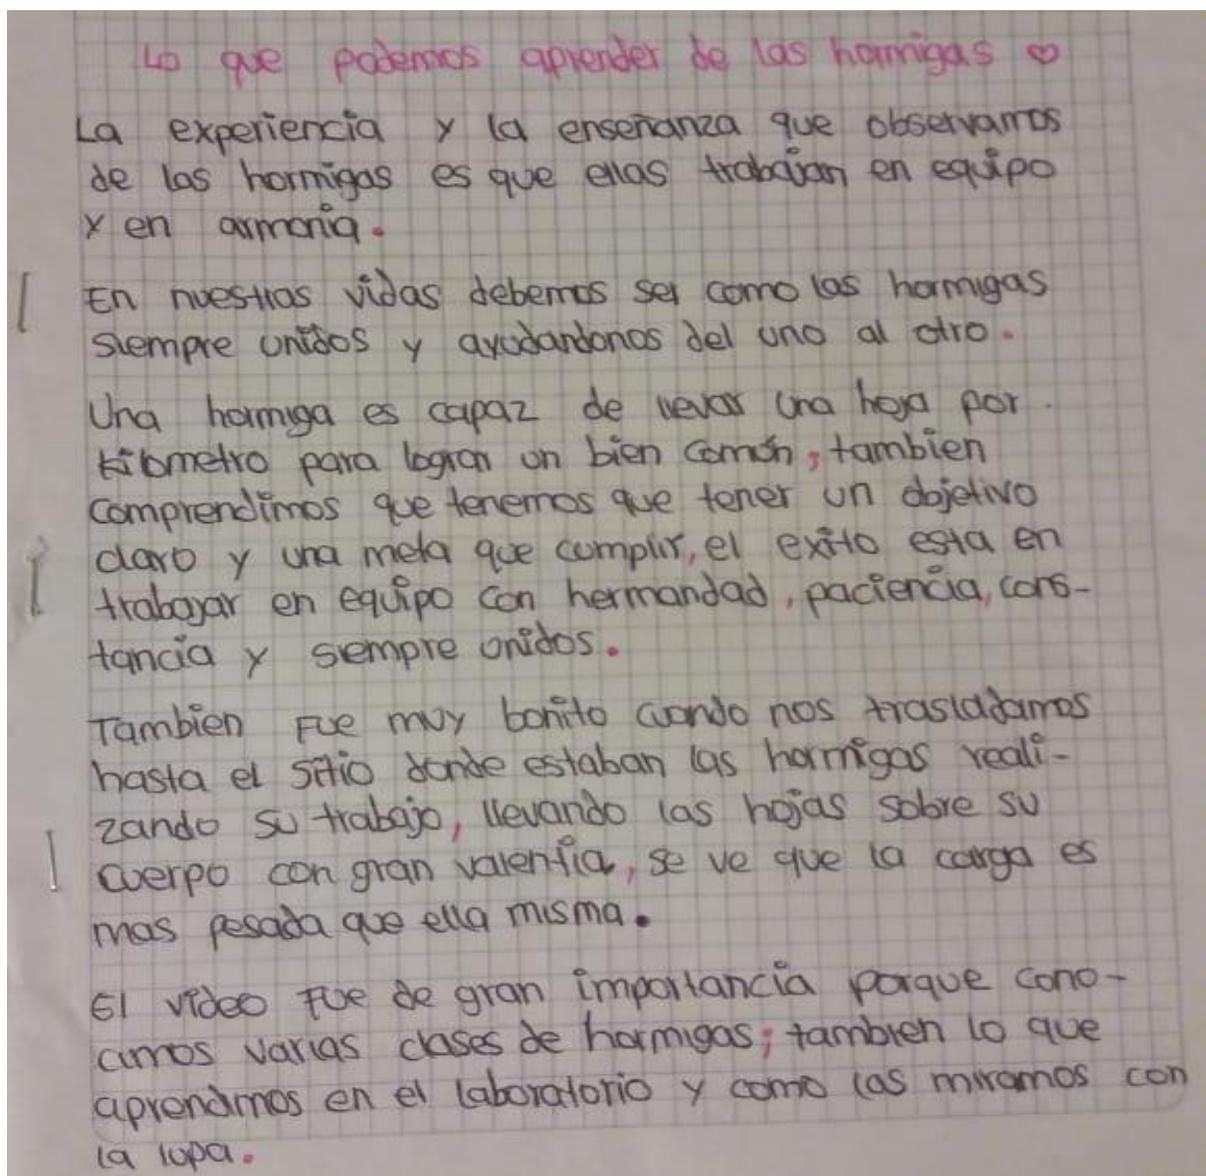 Lo que podemos aprender de las hormigas ♡
La experiencia y la enseñanza que observamos
de las hormigas es que ellas trabajan en equipo
y en armonia.
En nuestras vidas debemos ser como las hormigas
siempre unidos y ayudandonos del uno al otro.
Una hormiga es capaz de llevar una hoja por
kilometro para lograr un bien común, tambien
comprendimos que tenemos que tener un objetivo
claro y una meta que cumplir, el exito esta en
trabajar en equipo con hermandad, paciencia, cons-
tancia y siempre unidos.
Tambien Fue muy bonito cuando nos trasladamos
hasta el sitio donde estaban las hormigas reali-
zando su trabajo, llevando las hojas sobre su
cuerpo con gran valentia, se ve que la carga es
mas pesada que ella misma.
El video fue de gran importancia porque cono-
cimos varias clases de hormigas; tambien lo que
aprendimos en el laboratorio y como las miramos con
la lupa.